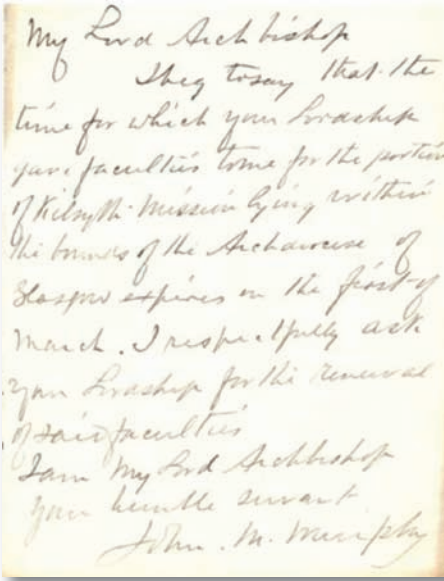 My Lord Archbishop
I beg to say that the
time for which your Lordship
gave faculties to me for the portion
of Kilsyth Mission lying within
the bounds of the Archdiocese of
Glasgow expires on the first of
March. I respectfully ask
your Lordship for the renewal
of said faculties
I am My Lord Archbishop
your humble servant
John. M. Murphy